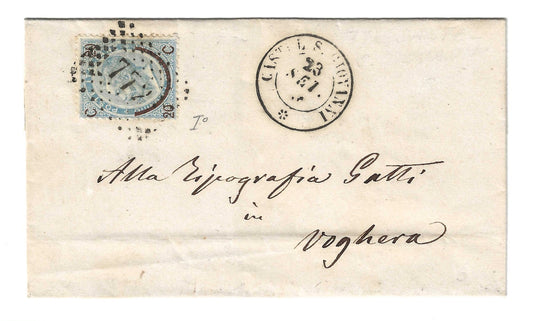 C 20 C 20
CASTEL S. GIOVANNI
23
SET.
I°
Alla Tipografia Gatti
in
Voghera